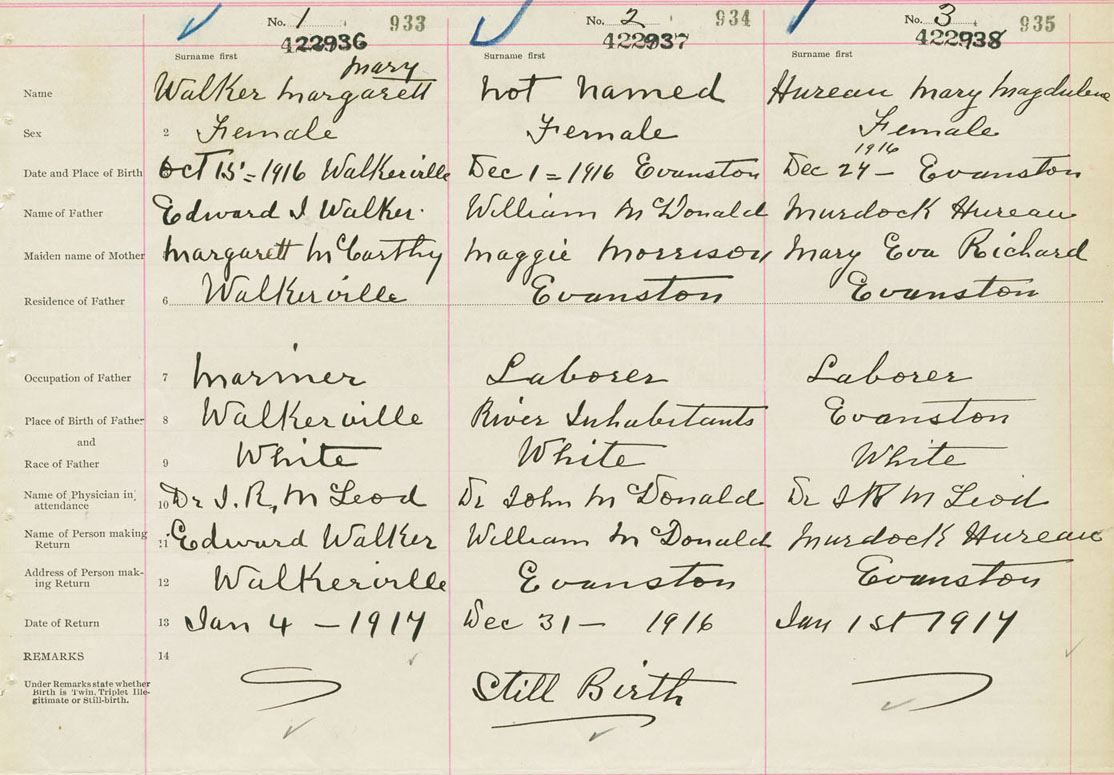 No. 1 933 No. 2 934 No. 3 935
422936 422937 422938
Surname first Surname first Surname first
Mary
Name Walker Margarett Not Named Hureau Mary Magdulene
Sex 2 Female Female Female
1916
Date and Place of Birth Oct 15 = 1916 Walkerville Dec 1 = 1916 Evanston Dec 24 — Evanston
Name of Father Edward J Walker. William McDonald Murdock Hureau
Maiden name of Mother Margarett McCarthy Maggie Morrison Mary Eva Richard
Residence of Father 6 Walkerville Evanston Evanston
Occupation of Father 7 Mariner Laborer Laborer
Place of Birth of Father 8 Walkerville River Inhabitants Evanston
and
Race of Father 9 White White White
Name of Physician in
attendance 10 Dr J. R, McLeod Dr John McDonald Dr J R McLeod
Name of Person making
Return 11 Edward Walker William McDonald Murdock Hureau
Address of Person mak-
ing Return 12 Walkerville Evanston Evanston
Date of Return 13 Jan 4 — 1917 Dec 31 — 1916 Jan 1st 1917
REMARKS 14
Under Remarks state whether
Birth is Twin, Triplet Ille-
gitimate or Still-birth. Still Birth